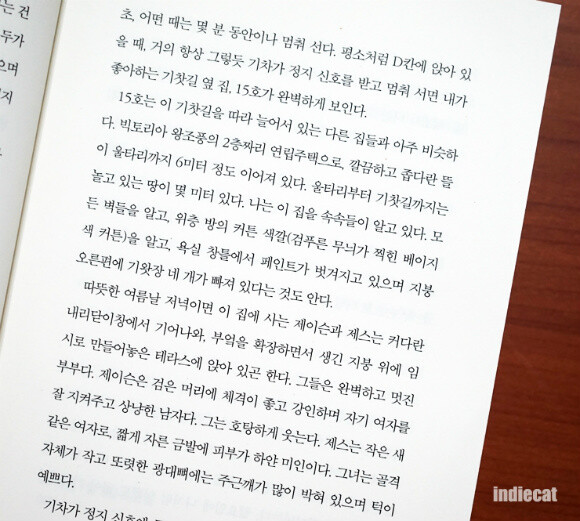 는 건
두가
으며
지
초, 어떤 때는 몇 분 동안이나 멈춰 선다. 평소처럼 D칸에 앉아 있
을 때, 거의 항상 그렇듯 기차가 정지 신호를 받고 멈춰 서면 내가
좋아하는 기찻길 옆 집, 15호가 완벽하게 보인다.
15호는 이 기찻길을 따라 늘어서 있는 다른 집들과 아주 비슷하
다. 빅토리아 왕조풍의 2층짜리 연립주택으로, 깔끔하고 좁다란 뜰
이 울타리까지 6미터 정도 이어져 있다. 울타리부터 기찻길까지는
놀고 있는 땅이 몇 미터 있다. 나는 이 집을 속속들이 알고 있다. 모
든 벽돌을 알고, 위층 방의 커튼 색깔(검푸른 무늬가 찍힌 베이지
색 커튼)을 알고, 욕실 창틀에서 페인트가 벗겨지고 있으며 지붕
오른편에 기왓장 네 개가 빠져 있다는 것도 안다.
따뜻한 여름날 저녁이면 이 집에 사는 제이슨과 제스는 커다란
내리닫이창에서 기어나와, 부엌을 확장하면서 생긴 지붕 위에 임
시로 만들어놓은 테라스에 앉아 있곤 한다. 그들은 완벽하고 멋진
부부다. 제이슨은 검은 머리에 체격이 좋고 강인하며 자기 여자를
잘 지켜주고 상냥한 남자다. 그는 호탕하게 웃는다. 제스는 작은 새
같은 여자로, 짧게 자른 금발에 피부가 하얀 미인이다. 그녀는 골격
자체가 작고 또렷한 광대뼈에는 주근깨가 많이 박혀 있으며 턱이
예쁘다.
기차가 정지 신호에
indiecat